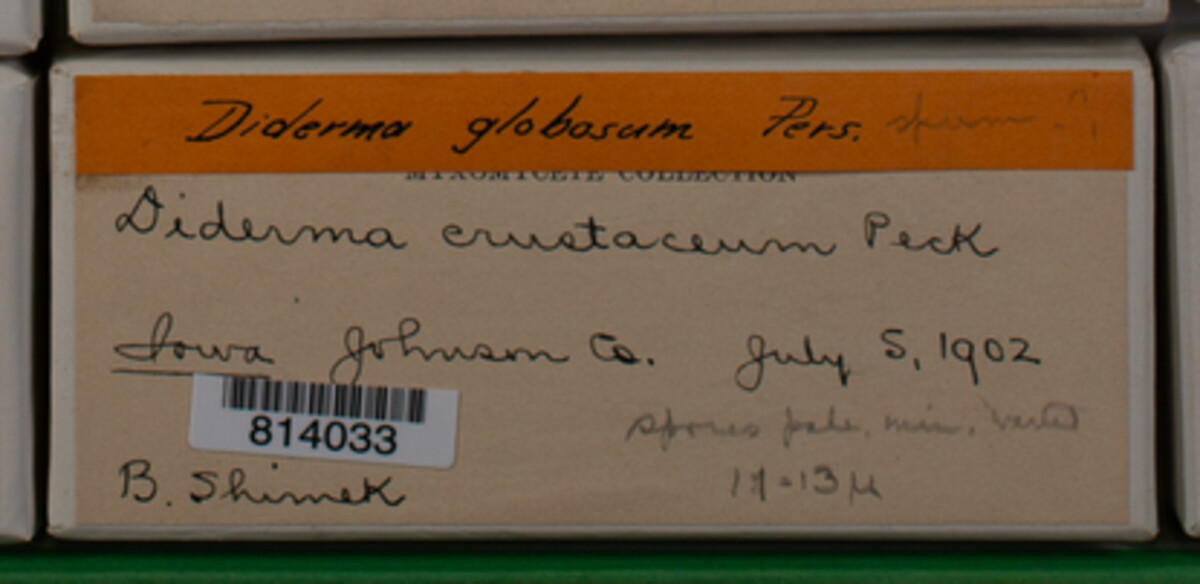 Diderma globosum Pers. spum - ?
MYXOMYCETE COLLECTION
Diderma crustaceum Peck
Iowa Johnson Co. July 5, 1902
814033
spores pale, min. warted
B. Shimek